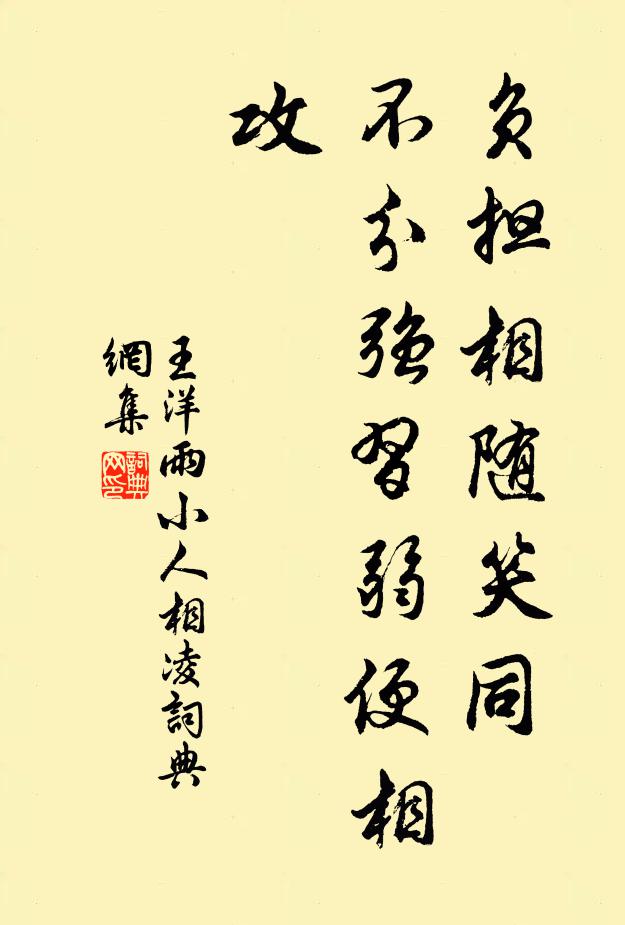 负担相随笑同
不分強習弱便相
攻
王洋兩小人相凌詞典
網集
詞典
网印